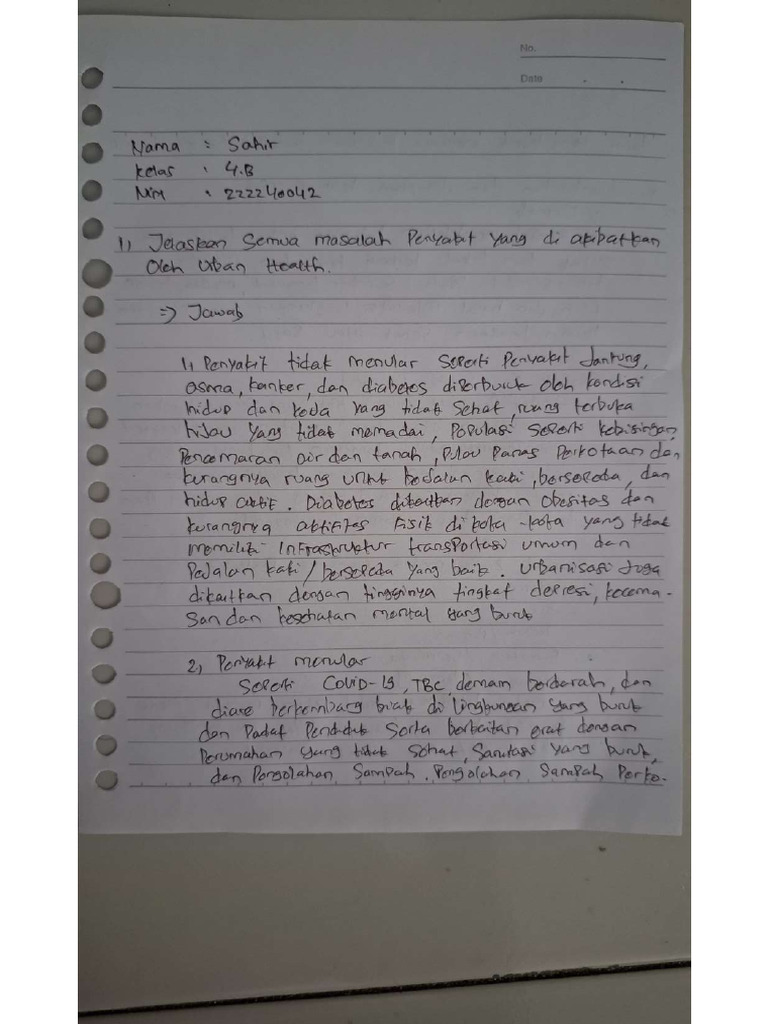 No.
Date
Nama : Sahir
Kelas : 4.B
Nim : 222240042
1) Jelaskan Semua masalah Penyakit yang di akibatkan
Oleh Urban Health.
=> Jawab
1) Penyakit tidak menular Seperti Penyakit Jantung,
asma, kanker, dan diabetes diperburuk oleh kondisi
hidup dan kerja yang tidak Sehat, ruang terbuka
hijau yang tidak memadai, Populasi Seperti kebisingan,
Pencemaran air dan tanah, Pulau Panas Perkotaan dan
kurangnya ruang untuk berjalan kaki, bersepeda, dan
hidup aktif. Diabetes dikaitkan dengan Obesitas dan
kurangnya aktifitas Fisik di kota-kota yang tidak
memiliki Infrastruktur transportasi umum dan
Pejalan kaki / bersepeda yang baik. Urbanisasi Juga
dikaitkan dengan tingginya tingkat depresi, kecema-
San dan kesehatan mental yang buruk
2) Penyakit menular
Seperti Covid-19, TBC, demam berdarah, dan
diare berkembang biak di lingkungan yang buruk
dan Padat Penduduk Serta berkaitan erat dengan
Perumahan yang tidak Sehat, Sanitasi yang buruk,
dan Pengolahan Sampah. Pengolahan Sampah Perko-